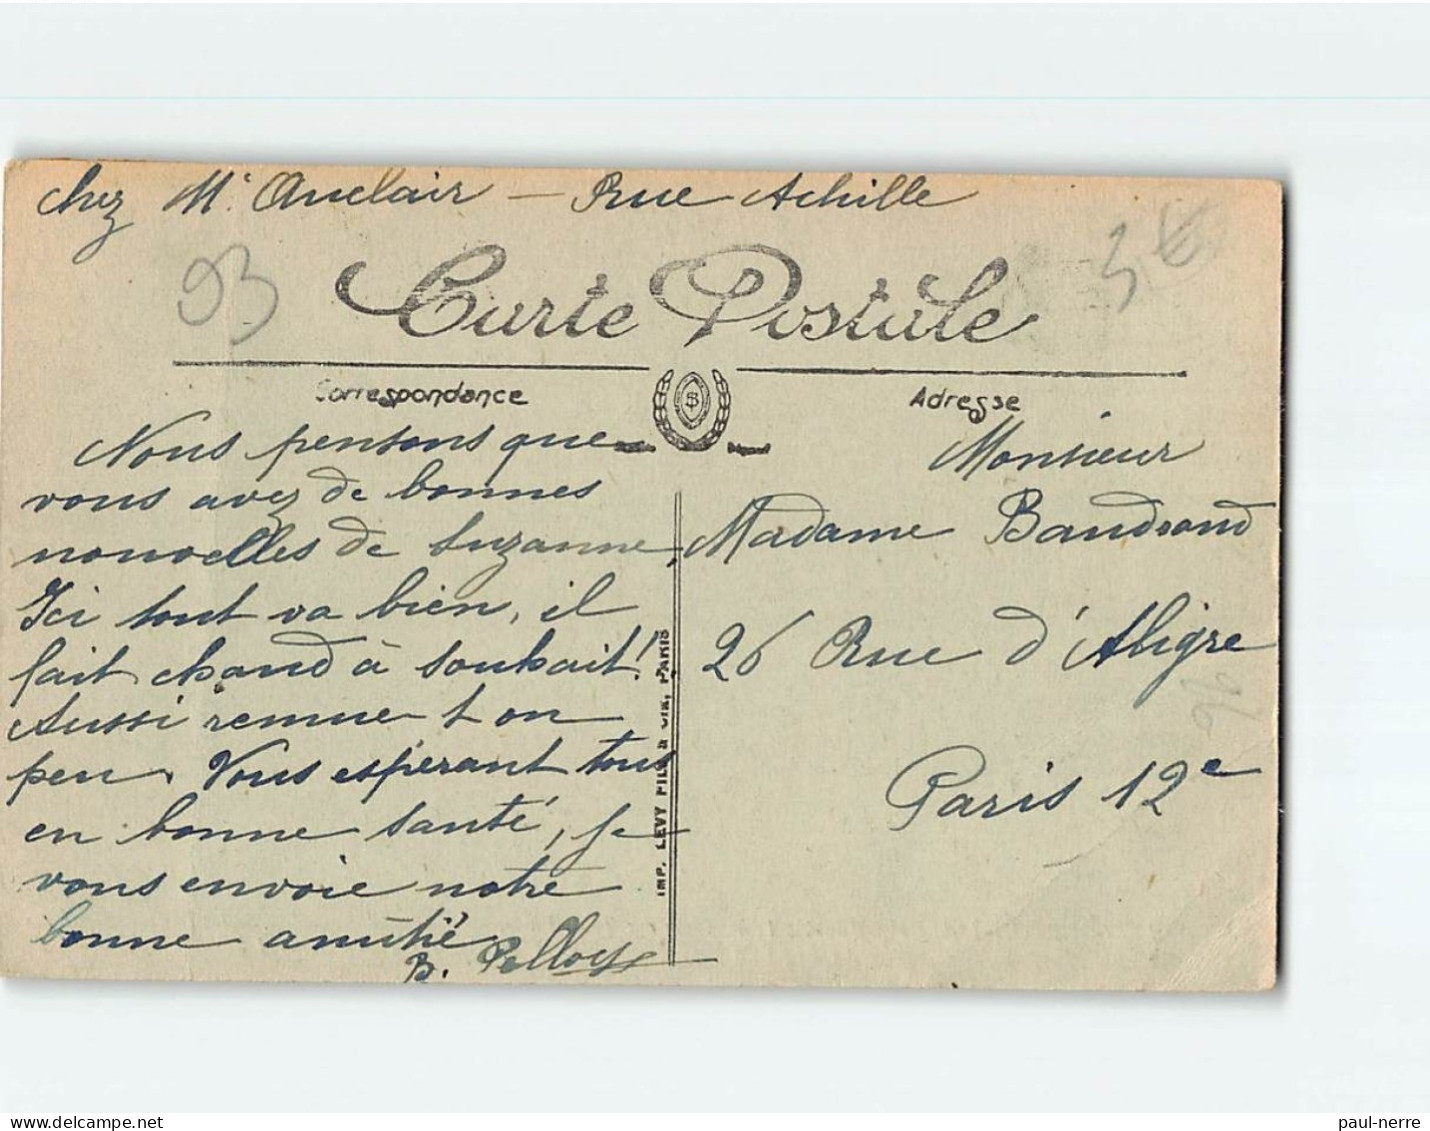 chez Mr Auclair — Rue Achille
93
5 €
Carte Postale
Correspondance
Adresse
Nous pensons que
vous avez de bonnes
nouvelles de Suzanne,
Ici tout va bien, il
fait chaud à souhait!
Aussi remue t on
peu. Vous espérant tous
en bonne santé, je
vous envoie notre
bonne amitié
B.
IMP. LEVY FILS & CIE, PARIS
Monsieur
Madame Baudrand
26 Rue d'Aligre
Paris 12e
paul-nerre